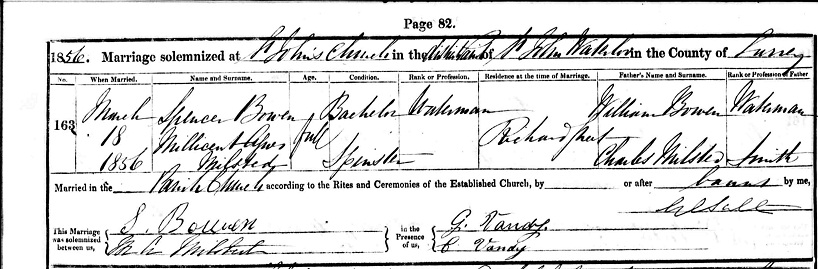 Page 82.
1856. Marriage solemnized at St John's Church in the District of St John Waterloo in the County of Surrey
No. When Married. Name and Surname. Age. Condition. Rank or Profession. Residence at the time of Marriage. Father's Name and Surname. Rank or Profession of Father
163 March 18 1856 Spencer Bowen full Bachelor Waterman Richard Street William Bowen Waterman
Millicent Agnes Milsted Spinster Charles Milsted Smith
Married in the Parish Church according to the Rites and Ceremonies of the Established Church, by or after banns by me,
This Marriage was solemnized between us, S. Bowen In the Presence of us, G. Vandy.
M A Milsted C Vandy